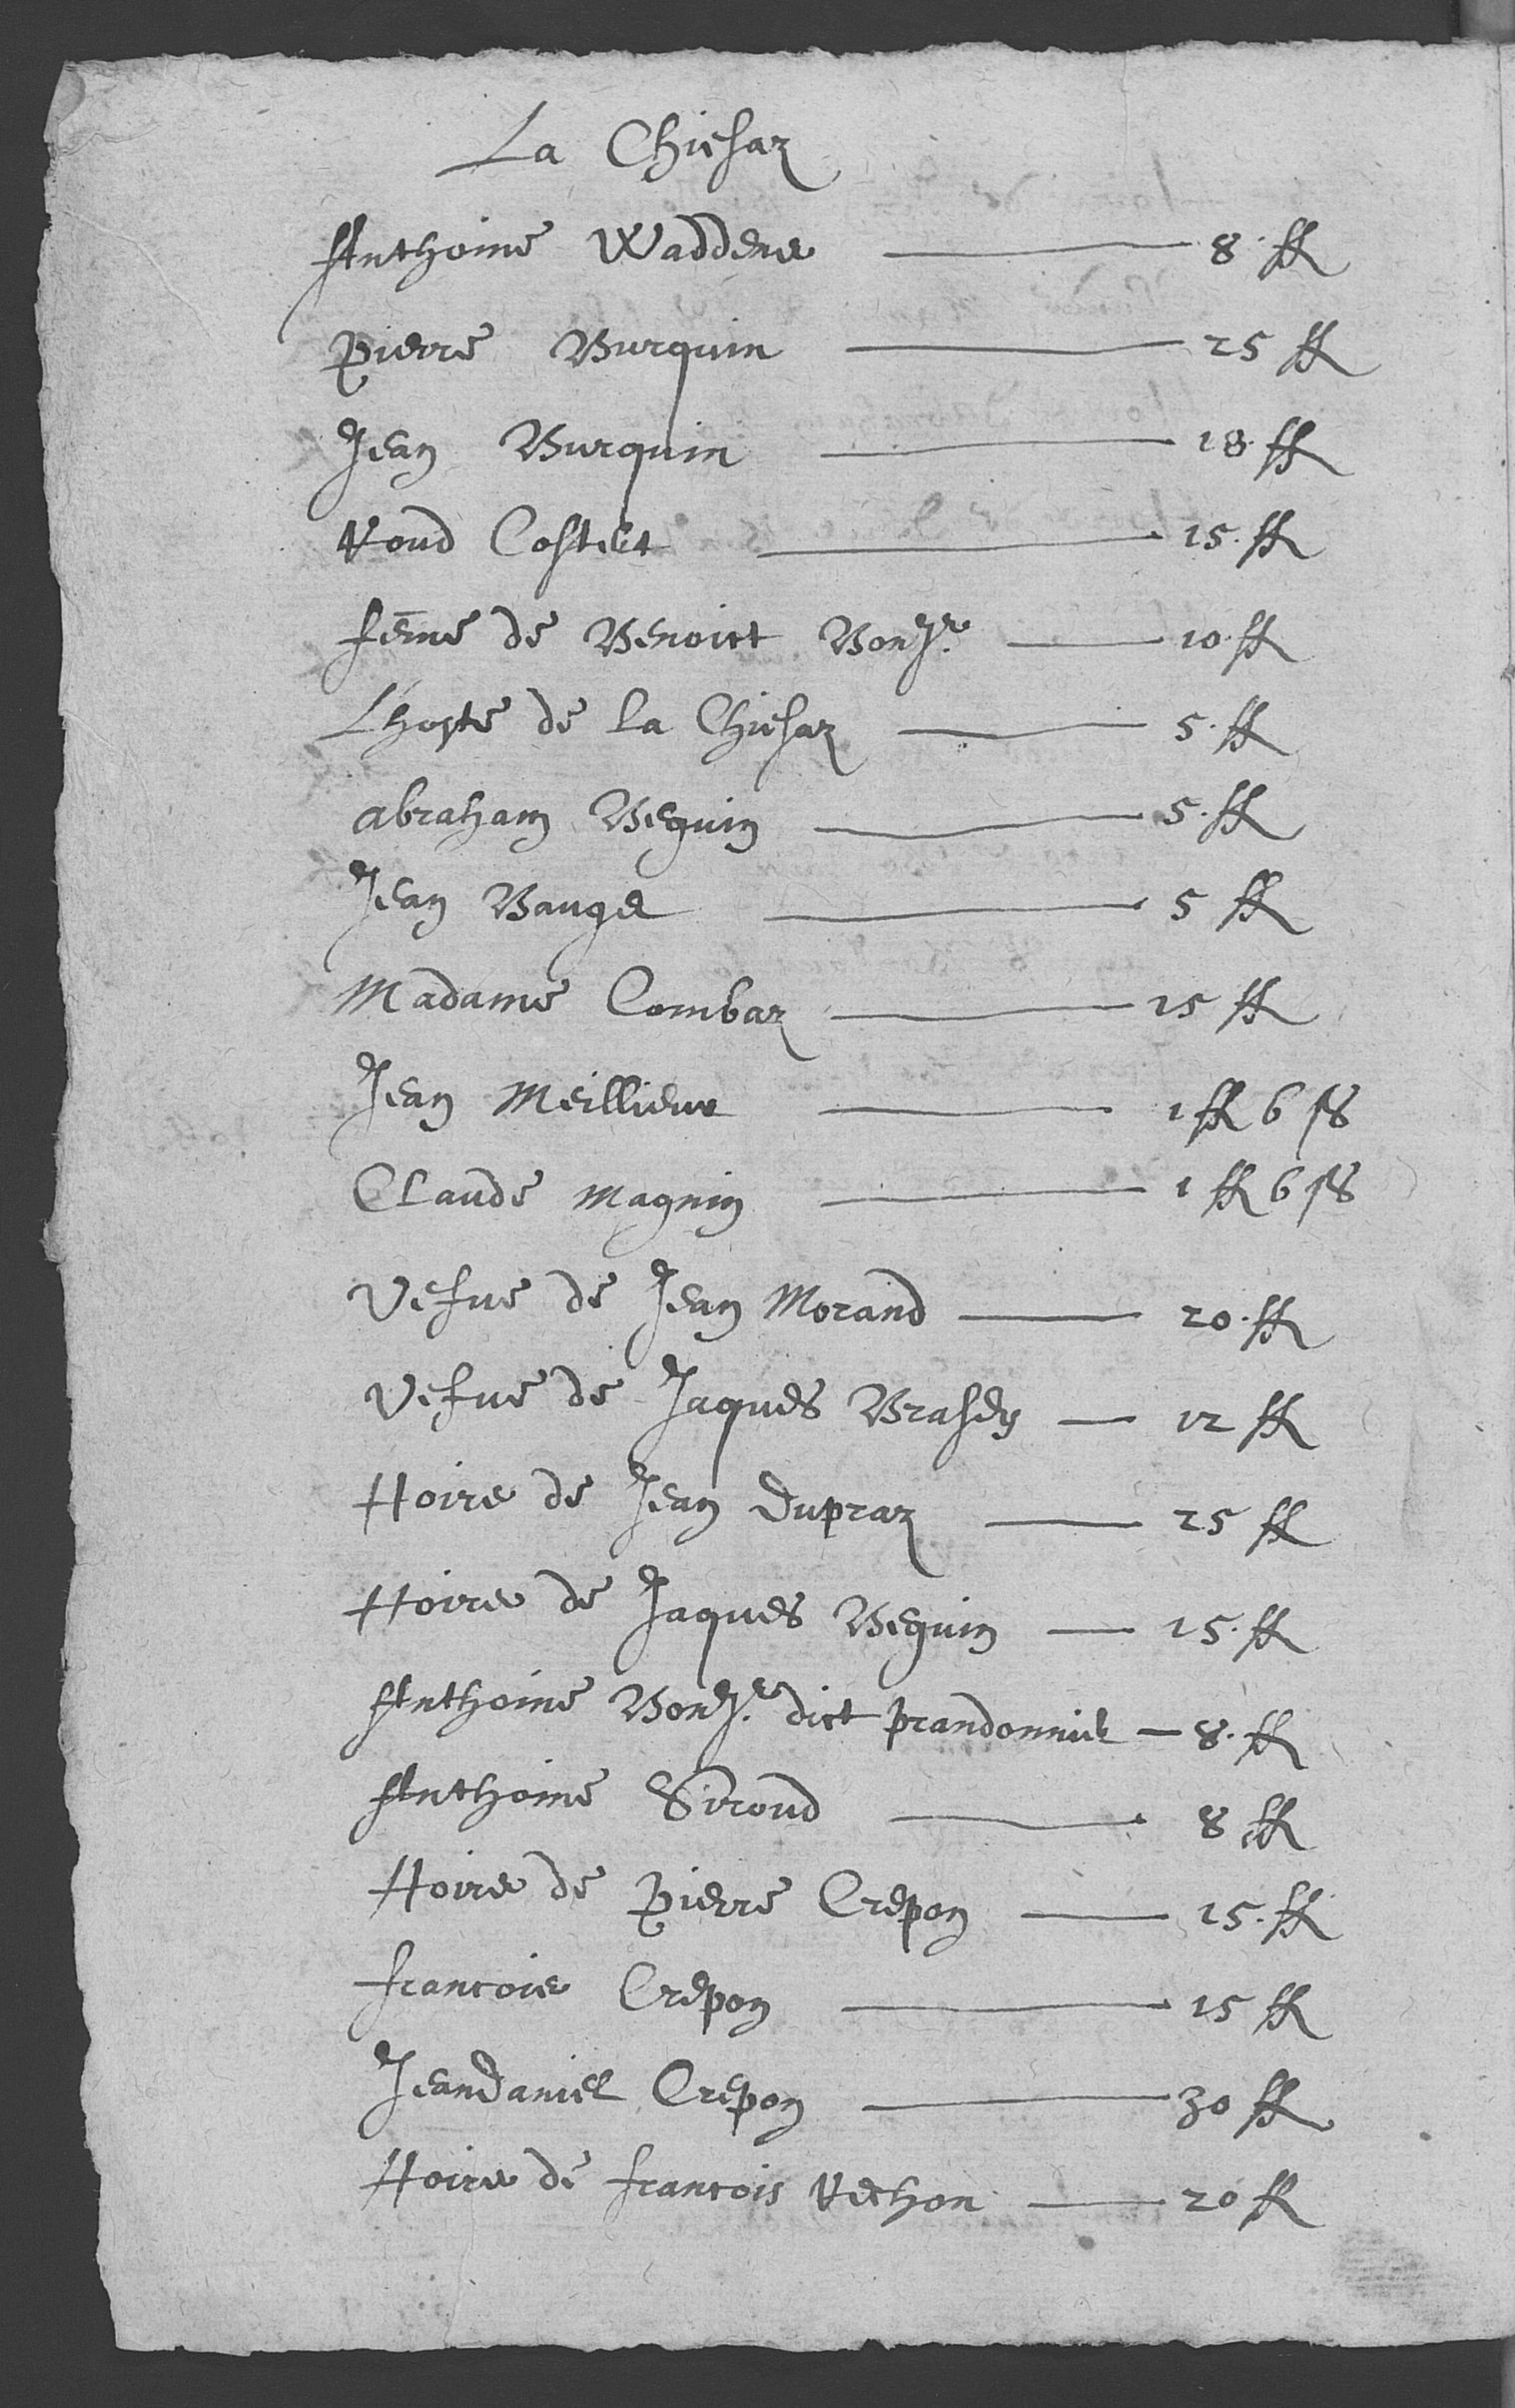 La Chiesaz
Anthoine Waddens ——— 8. ff
Pierre Burquin ——— 25 ff
Jean Burquin ——— 18. ff
Noud Costelt ——— 15. ff
fem̄e de Benoict Bonj.r ——— 10. ff
Lhoste de la Chiesaz ——— 5. ff
abraham Beguin ——— 5. ff
Jean Bauge ——— 5 ff
Madame Combaz ——— 15 ff
Jean Meillieur ——— 1 ff 6 ss
Claude Magnin ——— 1 ff 6 ss
Vefue de Jean Morand ——— 20. ff
Vefue de Jaques Brasey — 12 ff
Hoirs de Jean Dupraz ——— 25 ff
Hoirs de Jaques Beguin — 15. ff
Anthoine Bonj.r dict prandonniel — 8. ff
Anthoine Siroud ——— 8 ff
Hoirs de Pierre Crepon ——— 15. ff
francois Crepon ——— 15 ff
Jeandaniel Crepon ——— 30 ff
Hoirs de francois Rechon ——— 20 ff